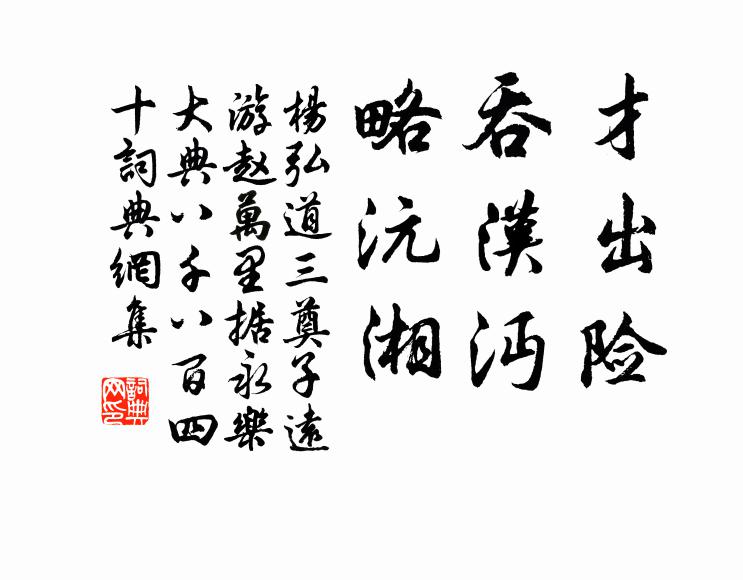 才出险
吞漢沔
略沅湘
楊弘道三奠子遠
游赵萬里据永樂
大典八千八百四
十詞典網集
詞典
网印